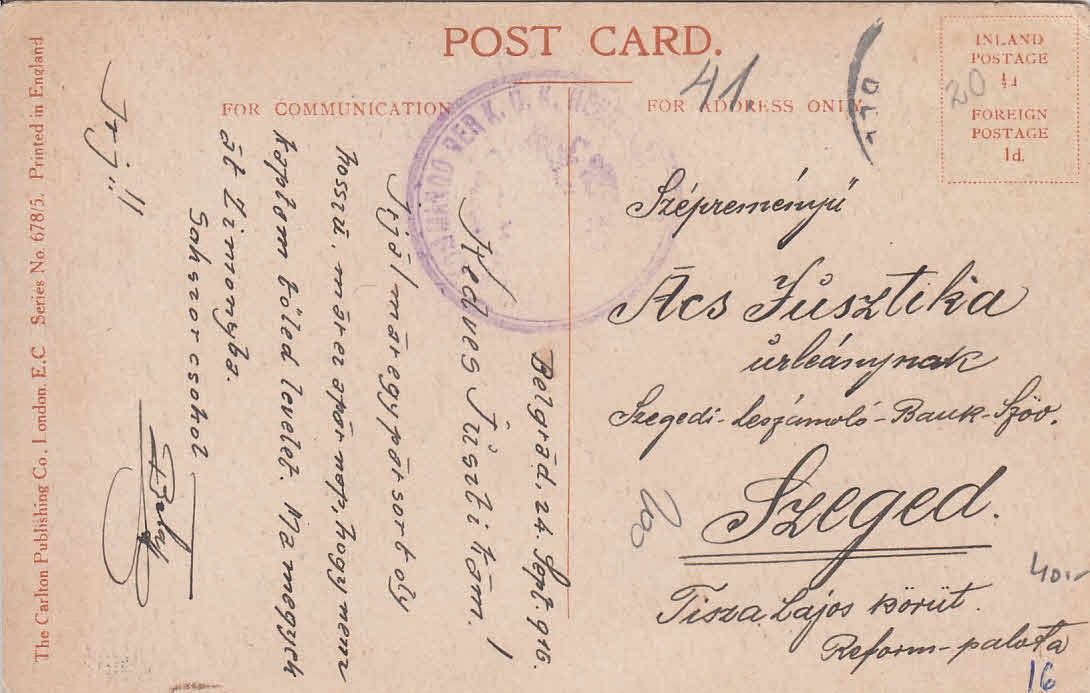 POST CARD.
FOR COMMUNICATION
FOR ADDRESS ONLY
INLAND
POSTAGE
½d
FOREIGN
POSTAGE
1d.
41.
20
Belgrád, 24. Sept. 916.
Kedves Jüsztikám!
Irjál már egy pár sort oly
hosszú, már ez a pár nap, hogy nem
kaptam tőled levelet. Ma megyek
át Zimonyba.
Sokszor csókol
Irj!!
Szépreményű
Ács Jüsztika
úrleánynak
Szegedi-Leszámoló-Bank-Szöv.
Szeged.
Tisza Lajos körút.
Reform-palota
40.-
16
The Carlton Publishing Co., London, E.C Series No. 678/5. Printed in England